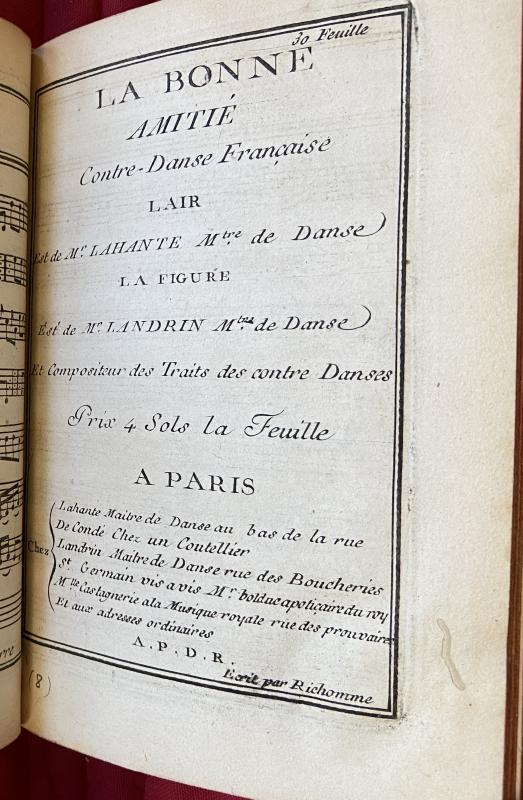 30 Feuille
LA BONNE
AMITIÉ
Contre-Danse Française
LAIR
Est de Mr. LAHANTE Mtre. de Danse
LA FIGURE
Est de Mr. LANDRIN Mtre. de Danse
Et Compositeur des Traits des contre Danses
Prix 4 Sols la Feuille
A PARIS
Chez
Lahante Maitre de Danse au bas de la rue
De Condé Chez un Coutellier
Landrin Maitre de Danse rue des Boucheries
St. Germain vis a vis Mr. bolduc apoticaire du roy
Mlle Castagnerie a la Musique royale rue des prouvaires
Et aux adresses ordinaires
A. P. D. R.
Ecrit par Richomme
(8)